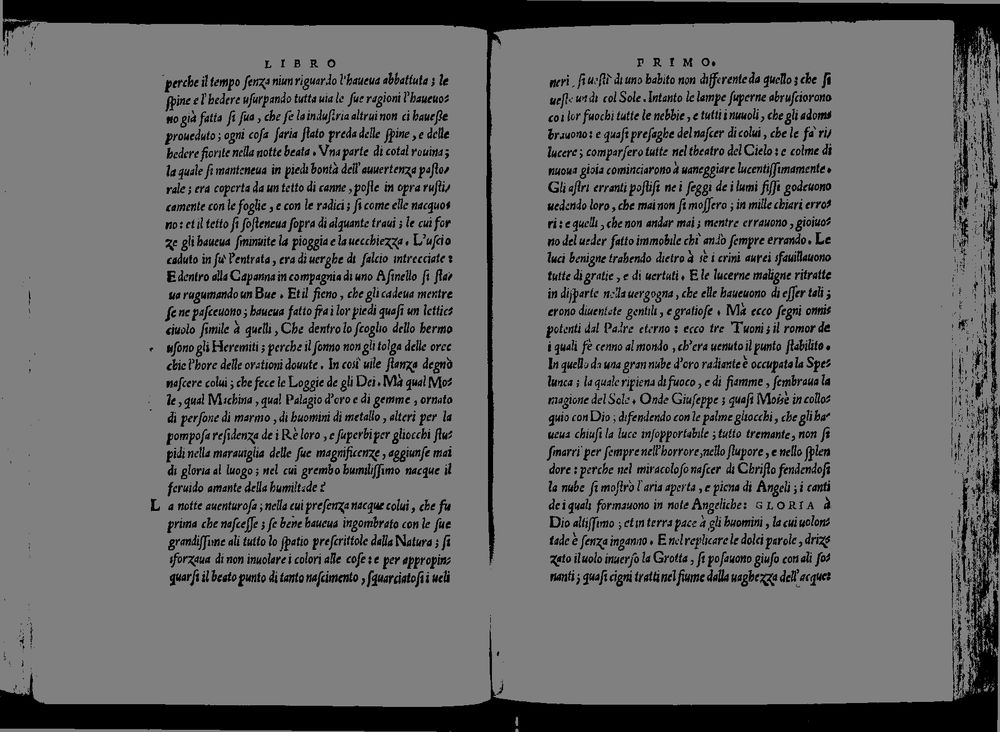 LIBRO
perche il tempo ſenza niun riguardo l'haueua abbattuta; le
ſpine e l'hedere uſurpando tutta uia le ſue ragioni l'haueuo-
no già fatta ſi ſua, che ſe la induſtria altrui non ci haueße
proueduto; ogni coſa ſaria ſtato preda delle ſpine, e delle
hedere fiorite nella notte beata. Vna parte di cotal rouina;
la quale ſi manteneua in piedi bontà dell'auuertenza paſto-
rale; era coperta da un tetto di canne, poſte in opra ruſti-
camente con le foglie, e con le radici; ſi come elle nacquo-
no: et il tetto ſi ſoſteneua ſopra di alquante traui; le cui for
ze gli haueua ſminuite la pioggia e la uecchiezza. L'uſcio
caduto in ſu l'entrata, era di uerghe di ſalcio intrecciate:
E dentro alla Capanna in compagnia di uno Aſinello ſi ſta-
ua rugumando un Bue. Et il fieno, che gli cadeua mentre
ſe ne paſceuono; haueua fatto fra i lor piedi quaſi un lettic-
ciuolo ſimile à quelli, Che dentro lo ſcoglio dello hermo
uſono gli Heremiti; perche il ſonno non gli tolga delle orec
chie l'hore delle orationi douute. In coſi uile ſtanza degnò
naſcere colui; che fece le Loggie de gli Dei. Mà qual Mo-
le, qual Machina, qual Palagio d'oro e di gemme, ornato
di perſone di marmo, di huomini di metallo, alteri per la
pompoſa reſidenza de i Rè loro, e ſuperbi per gliocchi ſtu-
pidi nella marauiglia delle ſue magnificenze, aggiunſe mai
di gloria al luogo; nel cui grembo humiliſſimo nacque il
feruido amante della humiltade?
La notte auenturoſa; nella cui preſenza nacque colui, che fu
prima che naſceſſe; ſe bene haueua ingombrato con le ſue
grandiſſime ali tutto lo ſpatio preſcrittole dalla Natura; ſi
sforzaua di non inuolare i colori alle coſe: e per appropin-
quarſi il beato punto di tanto naſcimento, ſquarciatoſi i ueli
PRIMO.
neri, ſi ueſtì di uno habito non differente da quello; che ſi
ueſte un di col Sole. Intanto le lampe ſuperne abruſciorono
co i lor fuochi tutte le nebbie, e tutti i nuuoli, che gli adom-
brauono: e quaſi preſaghe del naſcer di colui, che le fà ri-
lucere; comparſero tutte nel theatro del Cielo: e colme di
nuoua gioia cominciarono à uaneggiare lucentiſſimamente.
Gli aſtri erranti poſtiſi ne i ſeggi de i lumi fiſſi godeuono
uedendo loro, che mai non ſi moſſero; in mille chiari erro-
ri: e quelli, che non andar mai; mentre errauono, gioiuo-
no del ueder fatto immobile chi andò ſempre errando. Le
luci benigne trahendo dietro à sè i crini aurei sfauillauono
tutte di gratie, e di uertuti. E le lucerne maligne ritratte
in diſparte nella uergogna, che elle haueuono di eſſer tali;
erono diuentate gentili, e gratioſe. Mà ecco ſegni onni-
potenti dal Padre eterno: ecco tre Tuoni; il romor de
i quali fè cenno al mondo, ch'era uenuto il punto ſtabilito.
In quello da una gran nube d'oro radiante è occupata la Spe-
lunca; la quale ripiena di fuoco, e di fiamme, ſembraua la
magione del Sole. Onde Giuſeppe; quaſi Moisè in collo-
quio con Dio; difendendo con le palme gliocchi, che gli ha-
ueua chiuſi la luce inſopportabile; tutto tremante, non ſi
ſmarrì per ſempre nell'horrore, nello ſtupore, e nello ſplen
dore: perche nel miracoloſo naſcer di Chriſto fendendoſi
la nube ſi moſtrò l'aria aperta, e piena di Angeli; i canti
de i quali formauono in note Angeliche: GLORIA à
Dio altiſſimo; et in terra pace à gli huomini, la cui uolon-
tade è ſenza inganno. E nel replicare le dolci parole, driz-
zato il uolo inuerſo la Grotta, ſi poſauono giuſo con ali ſo-
nanti; quaſi cigni tratti nel fiume dalla uaghezza dell'acque: